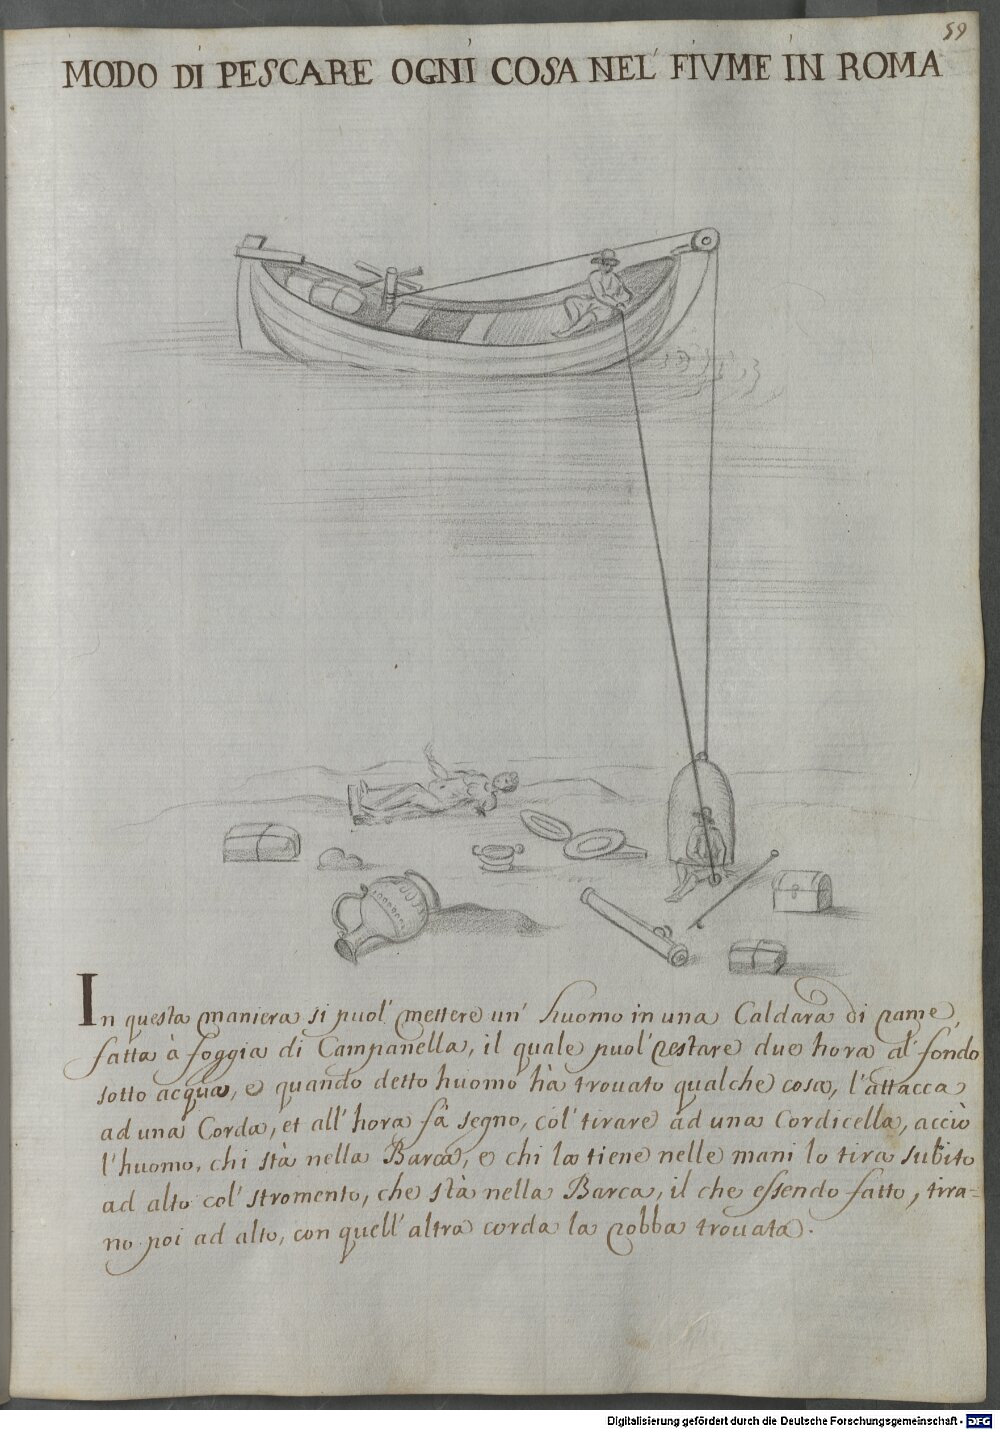 59
MODO DI PESCARE OGNI COSA NEL FIVME IN ROMA
In questa maniera si puol' mettere un' huomo in una Caldara di rame,
fatta à foggia di Campanella, il quale puol' restare due hora al' fondo
sotto acqua, e quando detto huomo hà trouato qualche cosa, l'attacca
ad una Corda, et all' hora fà segno, col' tirare ad una Cordicella, acciò
l'huomo, chi stà nella Barca, e chi la tiene nelle mani lo tira subito
ad alto col' stromento, che stà nella Barca, il che essendo fatto, tira=
no poi ad alto, con quell' altra corda la robba trouata.
Digitalisierung gefördert durch die Deutsche Forschungsgemeinschaft - DFG